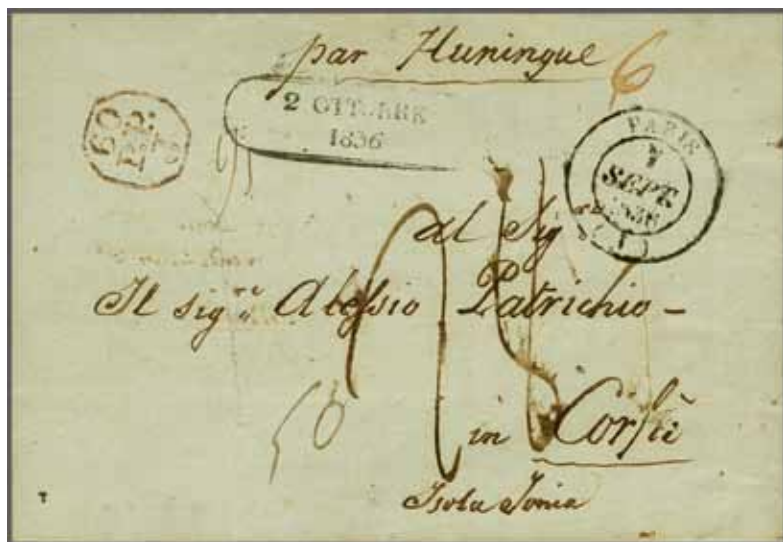 par Huningue
6
60
P.P.
2 OTTOBRE
1836
PARIS
7
SEPT.
1836
(1)
al Sig.re
Il sig.re Alessio Patrichio -
50
in Corfù
Isola Jonia